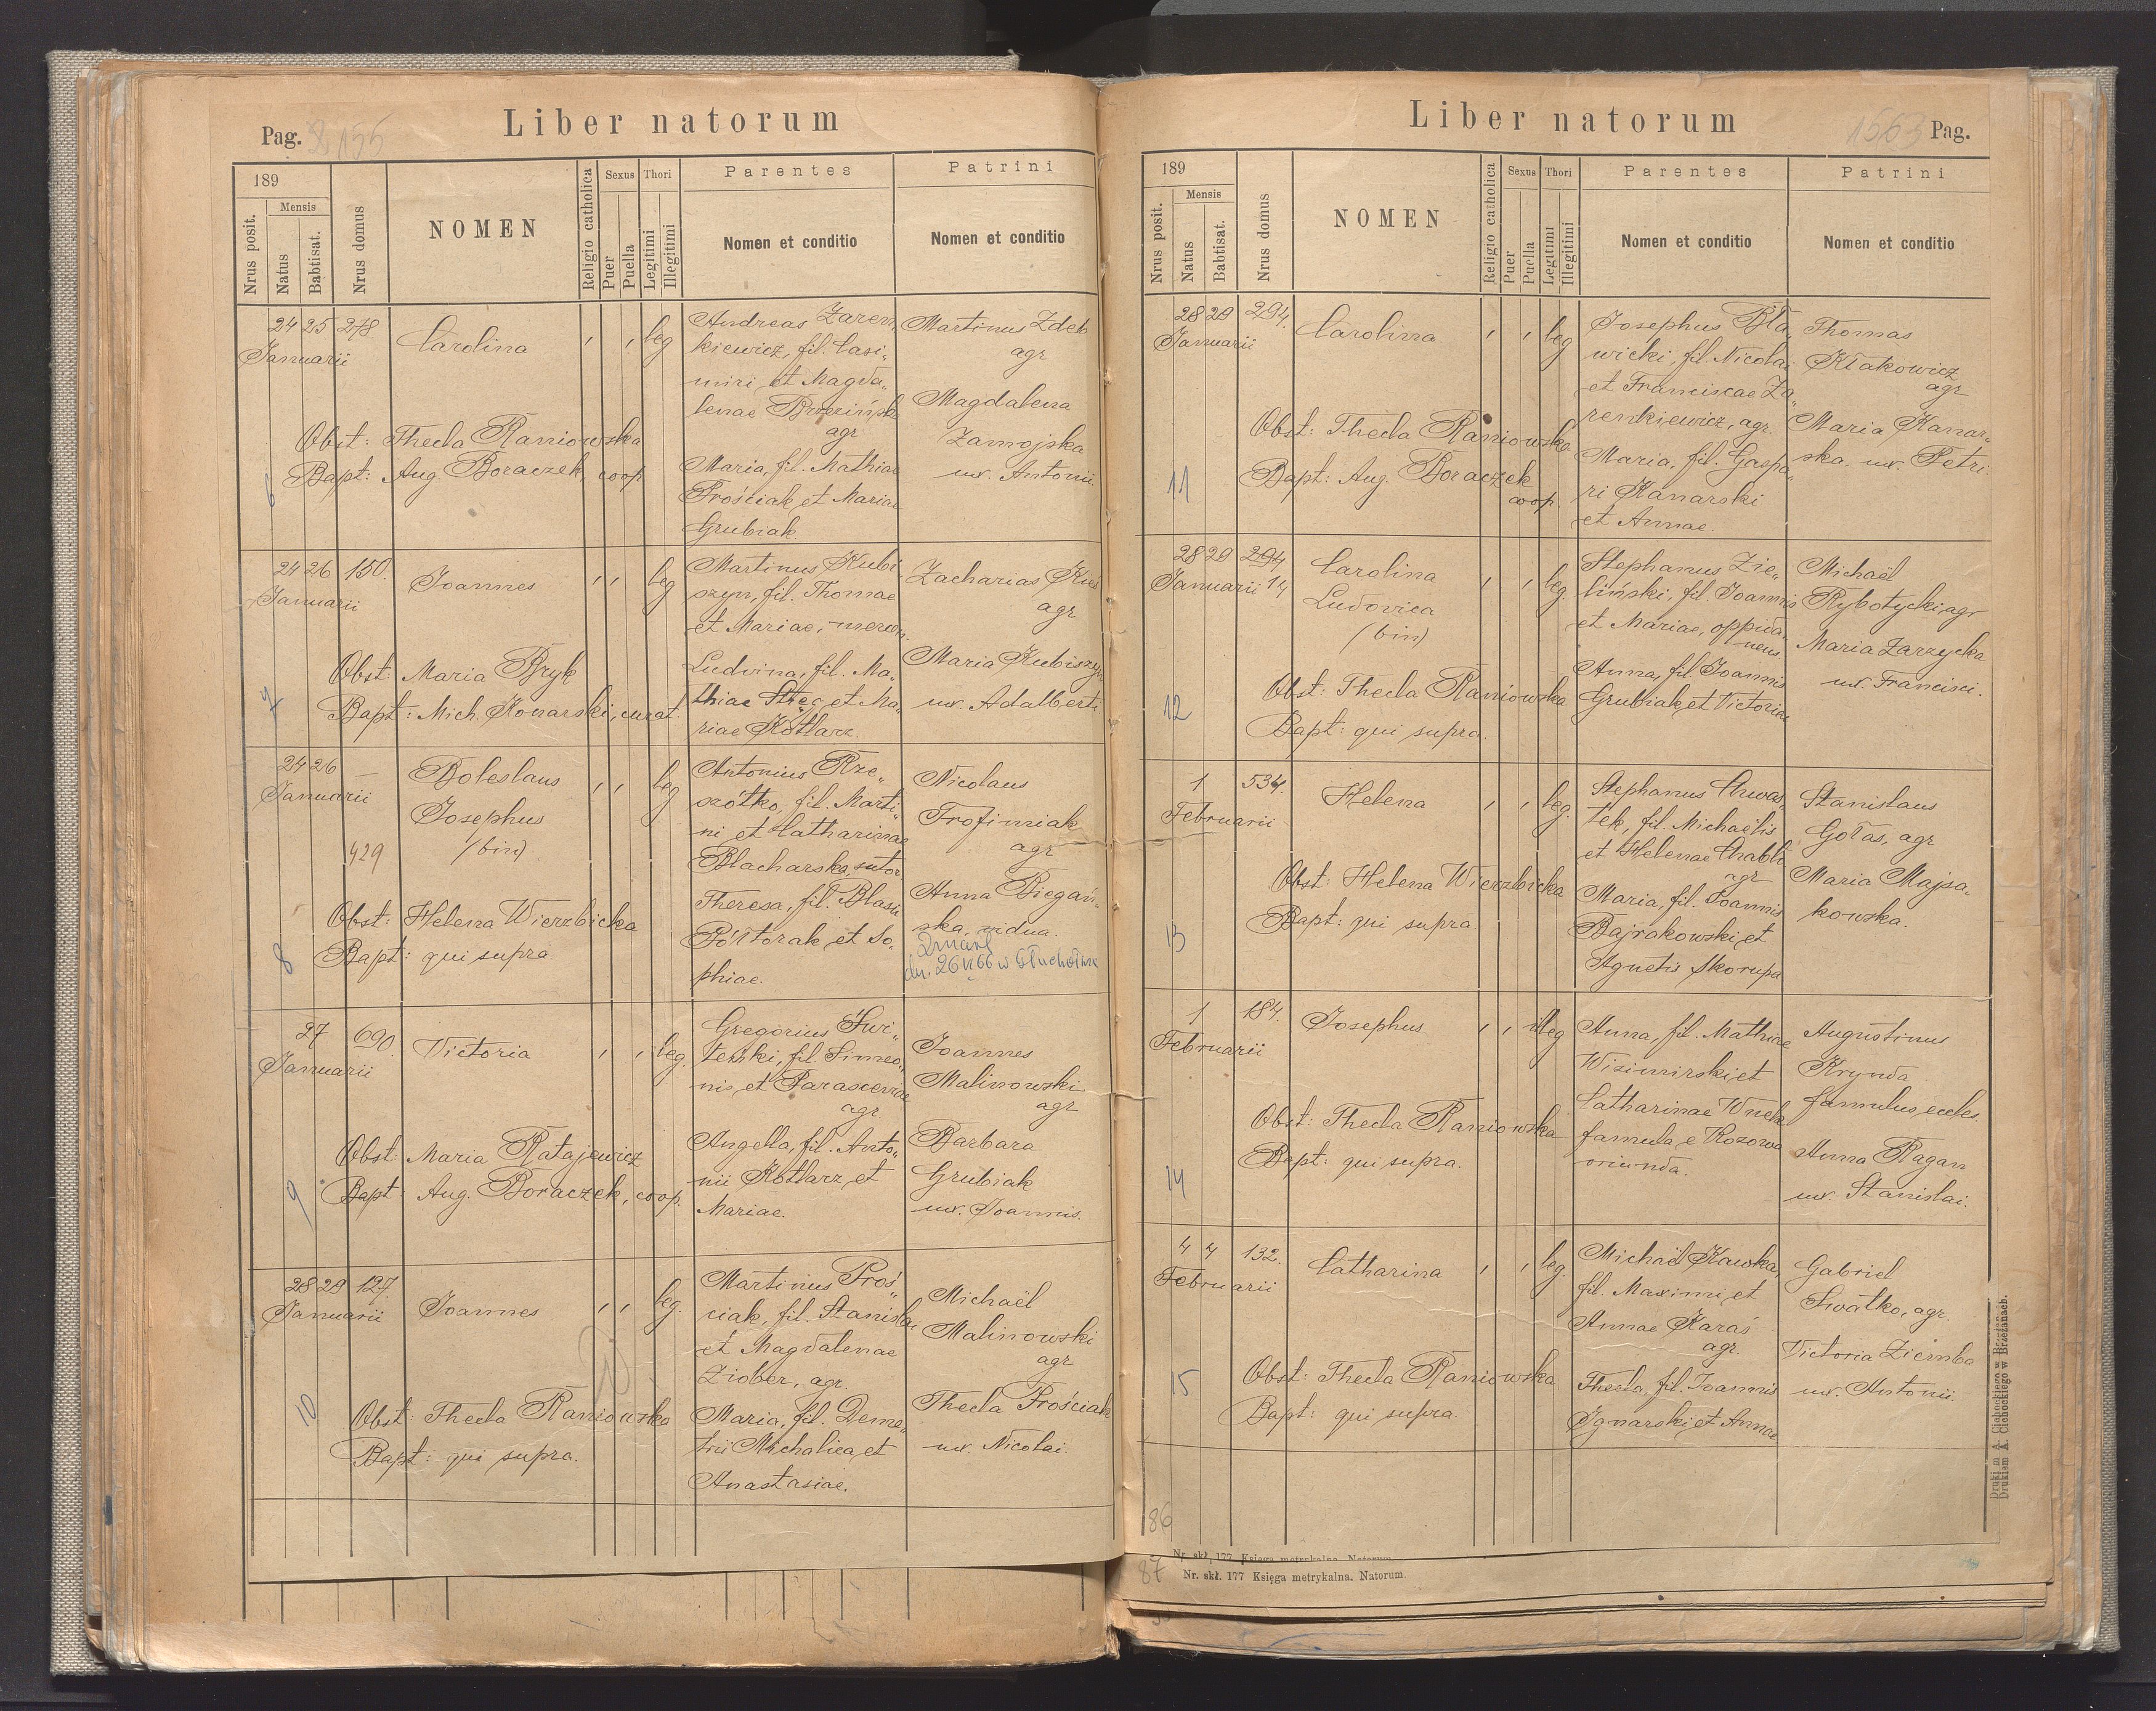 Pag. 155
Liber natorum
189
Nrus posit.
Mensis
Natus
Babtisat.
Nrus domus
NOMEN
Religio catholica
Sexus
Puer
Puella
Thori
Legitimi
Illegitimi
Parentes
Nomen et conditio
Patrini
Nomen et conditio
6
24 25 278
Januarii
Carolina
, , leg
Obst: Thecla Raniowska
Bapt: Aug. Boraczek, coop.
Andreas Zaren„
kiewicz, fil. Casi„
miri et Magda„
lenae Brzezińsk
agr
Maria, fil. Mathiae
Prościak et Mariae
Grubiak.
Martinus Zdeb
agr
Magdalena
Zamojska
ux. Antonii.
7
24 26 150.
Januarii
Joannes
, , leg
Obst: Maria Bryk
Bapt: Mich. Konarski, curat.
Martinus Kubi
szyn, fil. Thomae
et Mariae, merc.
Ludvina, fil. Ma„
thiae Stec et Ma„
riae Kotlarz.
Zacharias
agr
Maria Kubiszyn
ux. Adalberti
8
24 26 —
Januarii
429
Boleslaus
Josephus
/bin)
, , leg
Obst: Helena Wierzbicka
Bapt: qui supra.
Antonius Rze„
szótko, fil. Marti„
ni et Catharinae
Blacharska, sutor
Theresa, fil. Blasii
Półtorak et So„
phiae.
Nicolaus
Trofimiak
agr
Anna Biegań„
ska, vidua.
Zmarł
dn. 26 VI 66 w Głuchołaz
9
27 690.
Januarii
Victoria
, , leg.
Obst: Maria Ratajewicz
Bapt: Aug. Boraczek, coop.
Gregorius Świ„
terski, fil. Simeo„
nis et Parascevae
agr.
Angella, fil. Anto„
nii Kotlarz et
Mariae.
Joannes
Malinowski
agr
Barbara
Grubiak
ux. Joannis.
10
28 29 127.
Januarii
Joannes
, , leg.
Obst: Thecla Raniowska
Bapt: qui supra.
Martinus Proś„
ciak, fil. Stanislai
et Magdalenae
Ziober, agr.
Maria, fil. Deme„
trii Michalica et
Anastasiae.
Michaël
Malinowski
agr
Thecla Prościak
ux. Nicolai.
Liber natorum
Pag.
189
Nrus posit.
Mensis
Natus
Babtisat.
Nrus domus
NOMEN
Religio catholica
Sexus
Puer
Puella
Thori
Legitimi
Illegitimi
Parentes
Nomen et conditio
Patrini
Nomen et conditio
11
28 29 294.
Januarii
Carolina
, , leg
Obst: Thecla Raniowska
Bapt: Aug. Boraczek
coop.
Josephus Bła„
wicki, fil. Nicolai
et Franciscae Za„
renkiewicz, agr.
Maria, fil. Gaspa„
ri Kanarski
et Annae.
Thomas
Kłakowicz
agr
Maria Kanar„
ska, ux. Petri
12
28 29 294
Januarii 14
Carolina
Ludovica
/bin)
, , leg.
Obst: Thecla Raniowska
Bapt: qui supra.
Stephanus Zie„
liński, fil. Joannis
et Mariae, oppida„
neus.
Anna, fil. Joannis
Grubiak et Victoriae
Michaël
Rybotycki agr
Maria Zarzycka
ux. Francisci.
13
1 534.
Februarii
Helena
, , leg.
Obst: Helena Wierzbicka
Bapt: qui supra.
Stephanus Chwas„
tek, fil. Michaëlis
et Helenae Chabli
agr
Maria, fil. Joannis
Bajrakowski et
Agnetis Skorupa
Stanislaus
Gołas, agr
Maria Majsa„
kowska.
14
1 184.
Februarii
Josephus
, , illeg
Obst: Thecla Raniowska
Bapt: qui supra.
Anna, fil. Mathiae
Wisimirski et
Catharinae Wnek
famula e Kozowa
oriunda.
Augustinus
Krynda
famulus eccles.
Anna Ragan
ux. Stanislai.
15
4 4 132.
Februarii
Catharina
, , leg.
Obst: Thecla Raniowska
Bapt: qui supra.
Michaël Kawka,
fil. Maximi et
Annae Karaś
agr.
Thecla, fil. Joannis
Ignarski et Annae
Gabriel
Swatko, agr.
Victoria Ziemba
ux. Antonii.
86
87
Nr. skł. 177 Księga metrykalna. Natorum
Nr. skł. 177 Księga metrykalna. Natorum
Drukiem A. Cichockiego w Brzeżanach.